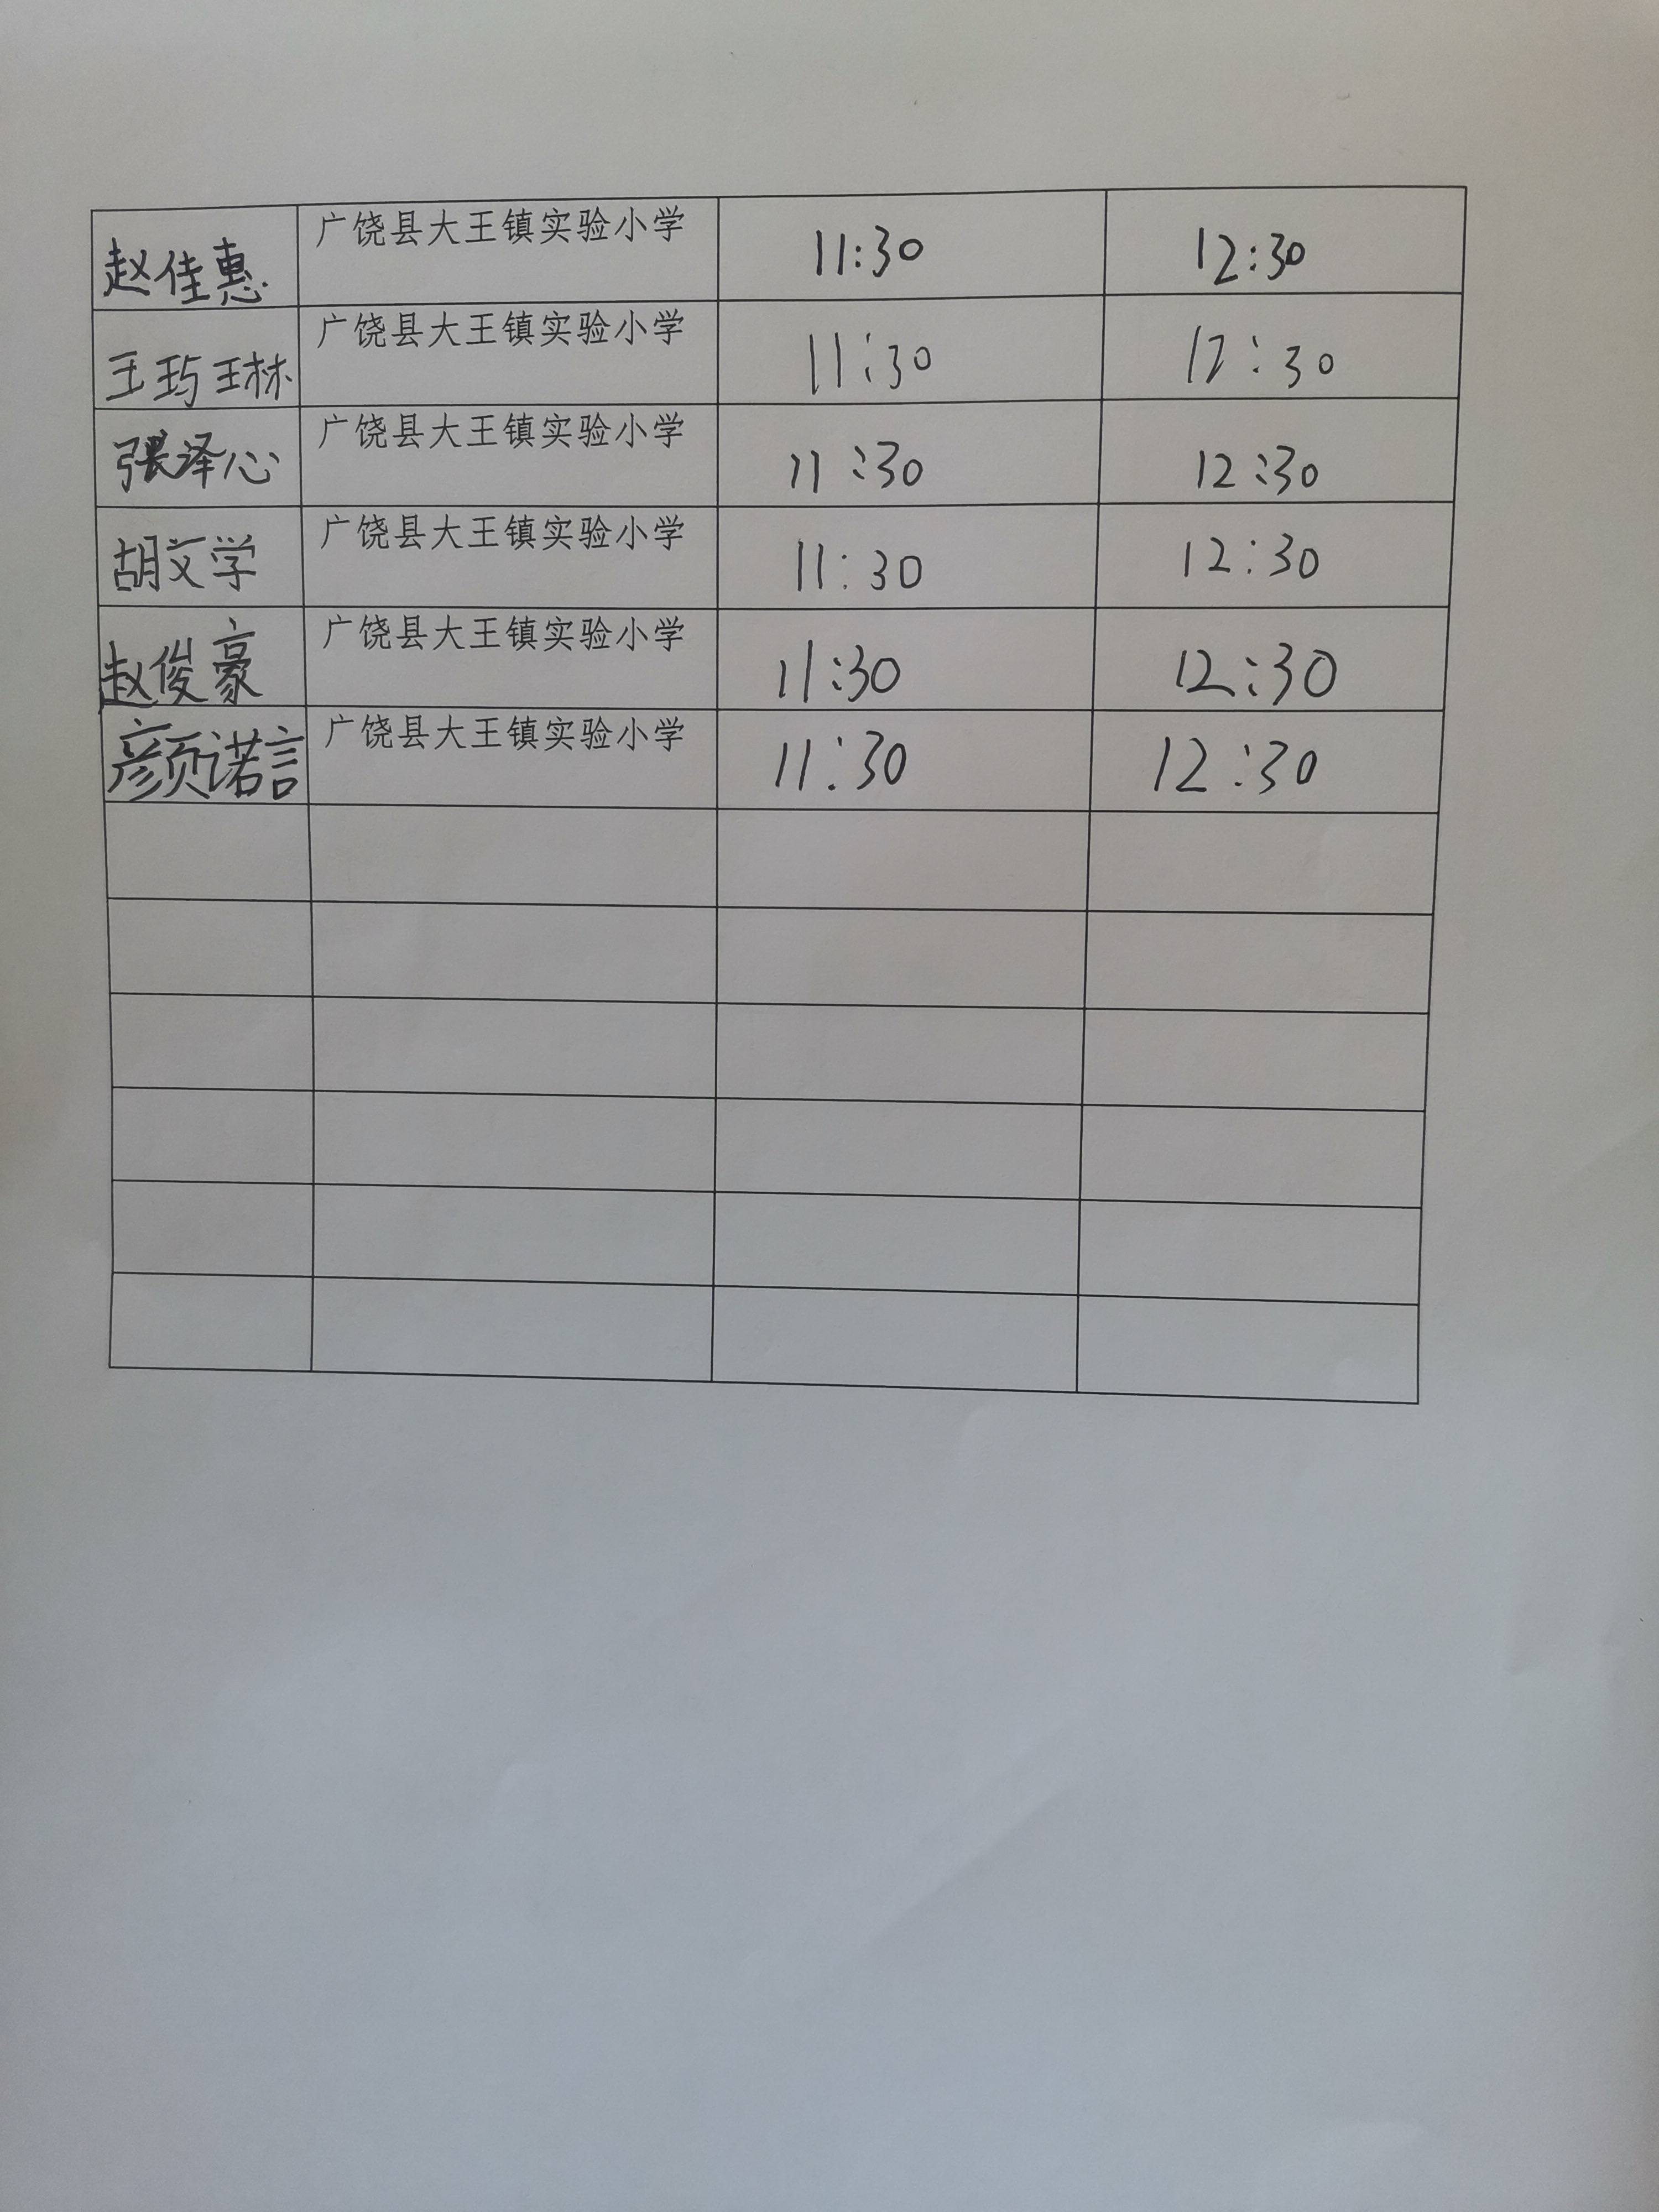 赵佳惠 广饶县大王镇实验小学 11:30 12:30
王玙琳 广饶县大王镇实验小学 11:30 12:30
张泽心 广饶县大王镇实验小学 11:30 12:30
胡文学 广饶县大王镇实验小学 11:30 12:30
赵俊豪 广饶县大王镇实验小学 11:30 12:30
颜诺言 广饶县大王镇实验小学 11:30 12:30